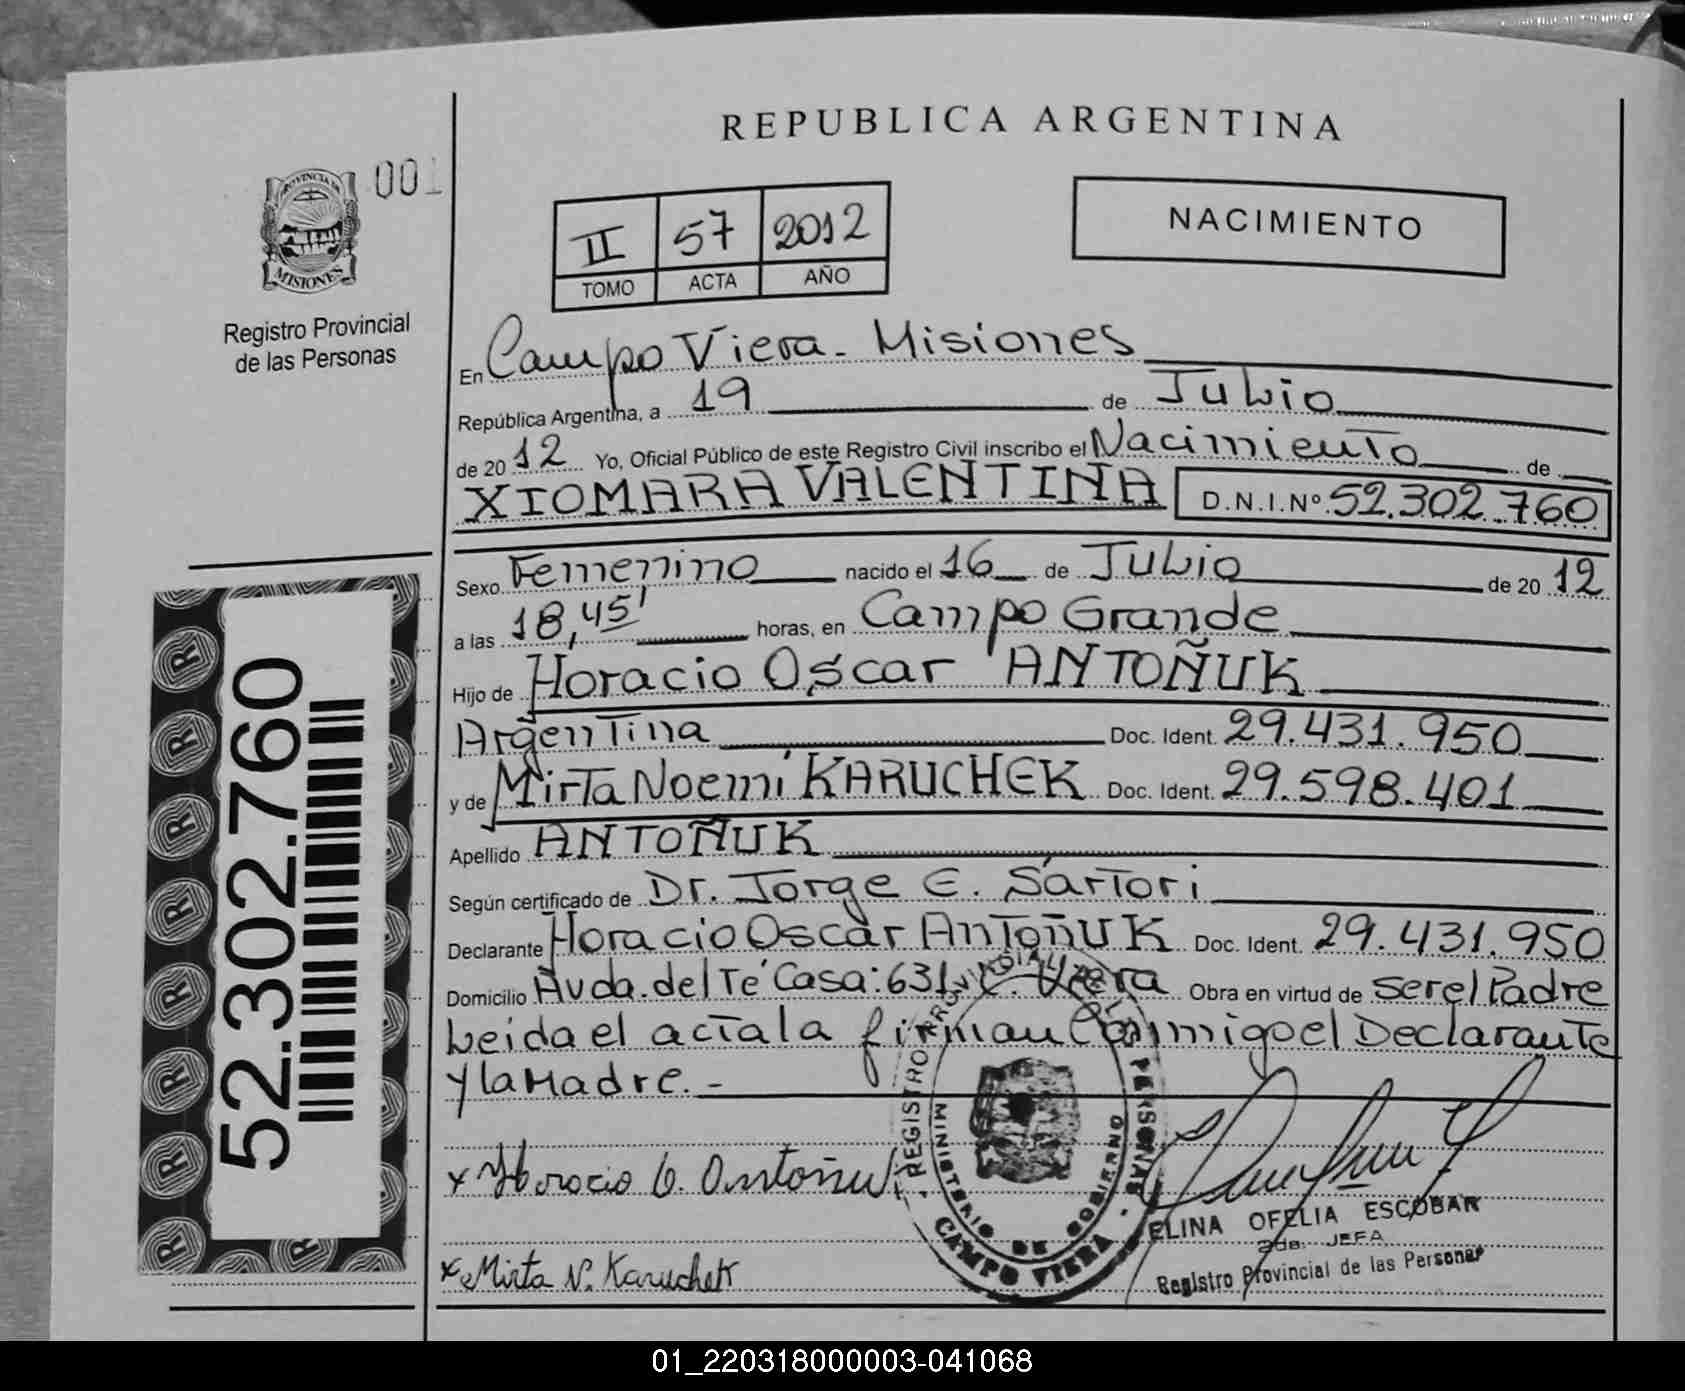 REPUBLICA ARGENTINA
PROVINCIA DE
MISIONES
001
Registro Provincial
de las Personas
II 57 2012
TOMO ACTA AÑO
NACIMIENTO
En Campo Viera - Misiones
República Argentina, a 19 de Julio
de 2012 Yo, Oficial Público de este Registro Civil inscribo el Nacimiento de
XIOMARA VALENTINA D.N.I.Nº 52.302.760
Sexo Femenino nacido el 16 de Julio de 2012
a las 18,45' horas, en Campo Grande
Hijo de Horacio Oscar ANTOÑUK
Argentina Doc. Ident. 29.431.950
y de Mirta Noemi KARUCHEK Doc. Ident. 29.598.401
Apellido ANTOÑUK
Según certificado de Dr. Jorge E. Sartori
Declarante Horacio Oscar AntoñUK Doc. Ident. 29.431.950
Domicilio Avda. del Té Casa: 631 C. Viera Obra en virtud de ser el Padre
Leida el acta la firman Conmigo el Declarante
y la Madre. -
52.302.760
x Horacio O. Antoñuk
x Mirta N. Karuchek
REGISTRO PROVINCIAL DE LAS PERSONAS
MINISTERIO DE GOBIERNO
CAMPO VIERA
ELINA OFELIA ESCOBAR
2da. JEFA
Registro Provincial de las Personas
01_220318000003-041068